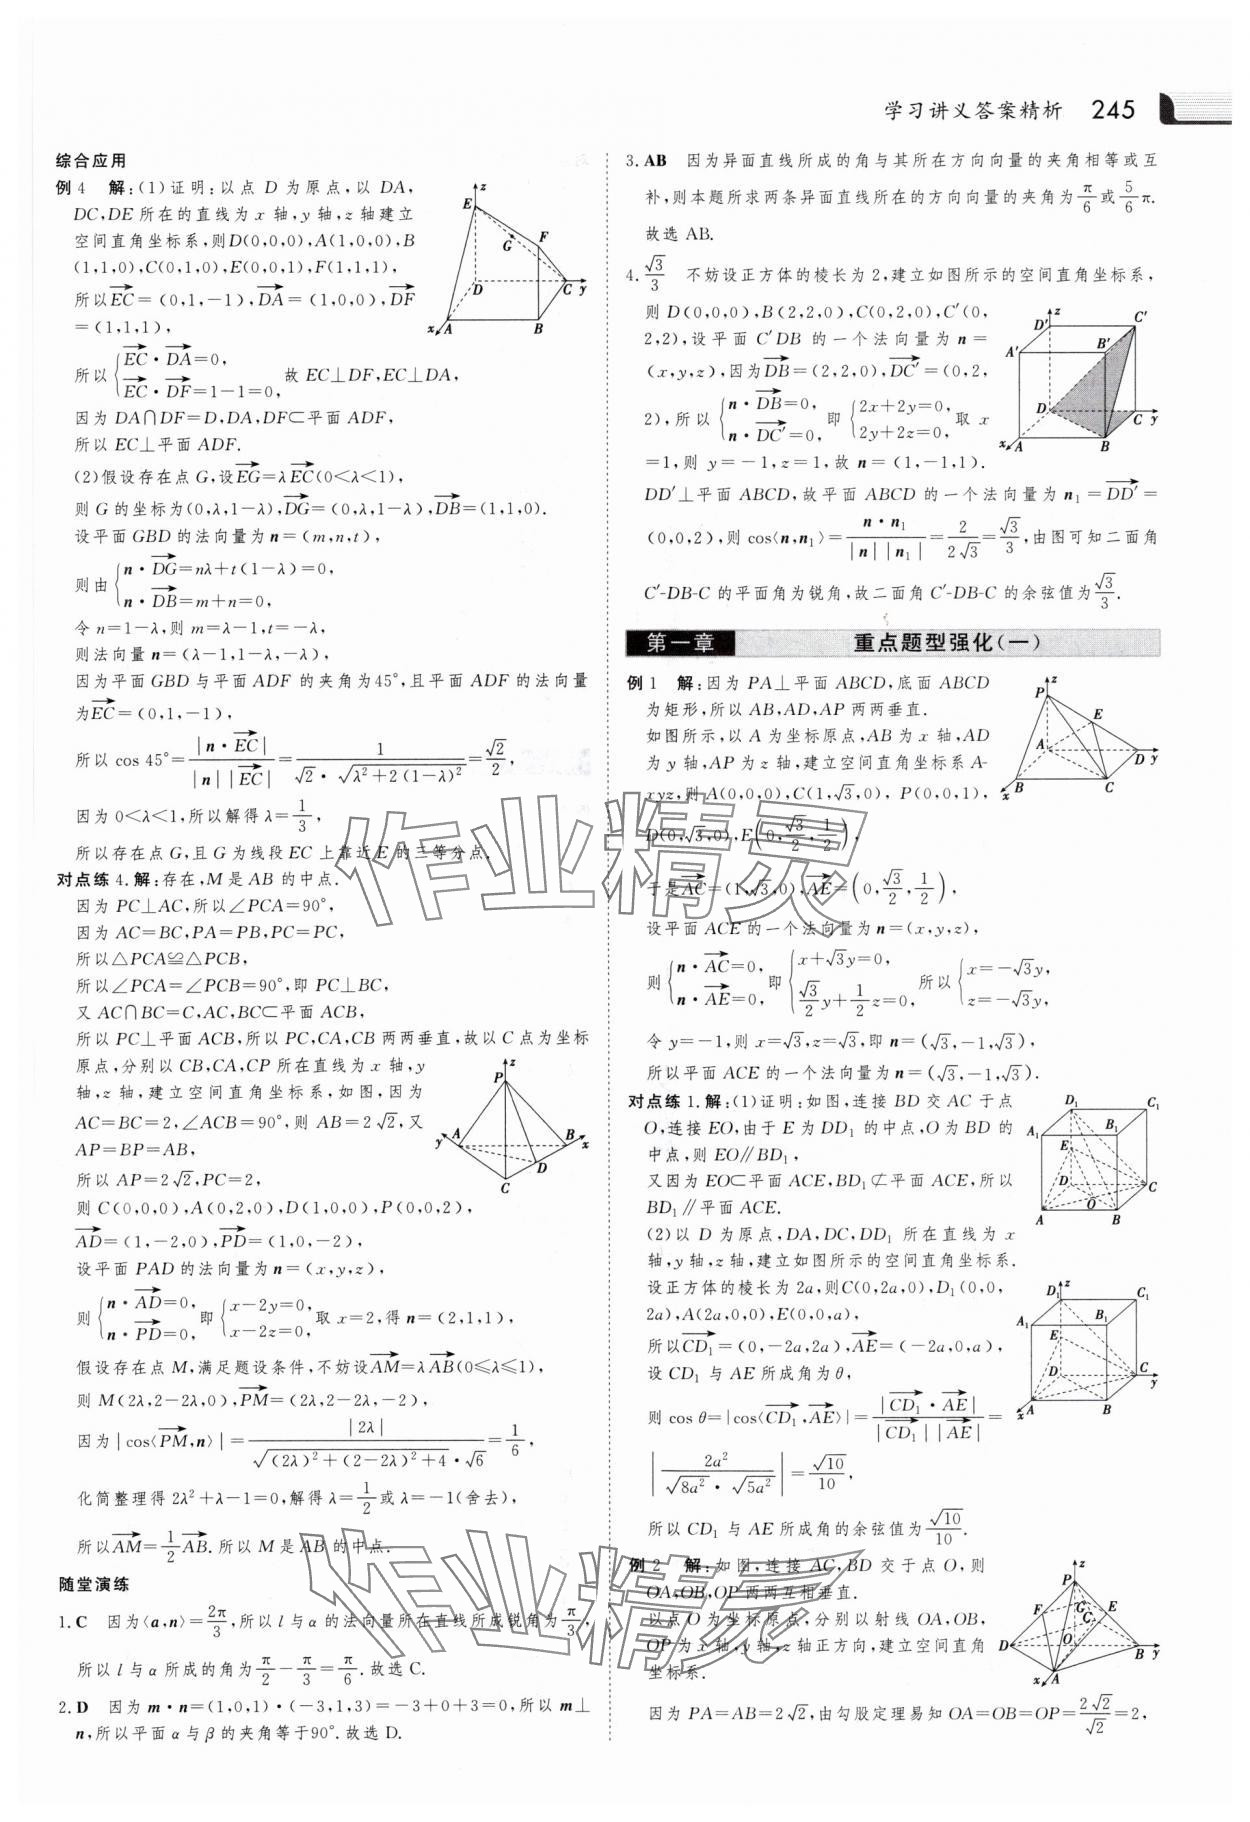 学习讲义答案精析 245
综合应用
例4 解:(1)证明:以点 D 为原点,以 DA,
DC,DE 所在的直线为 x 轴,y 轴,z 轴建立
空间直角坐标系,则D(0,0,0),A(1,0,0),B
(1,1,0),C(0,1,0),E(0,0,1),F(1,1,1),
所以$\overrightarrow{EC}$=(0,1,-1),$\overrightarrow{DA}$=(1,0,0),$\overrightarrow{DF}$
=(1,1,1),
所以$\begin{cases}\overrightarrow{EC}·\overrightarrow{DA}=0,\\\overrightarrow{EC}·\overrightarrow{DF}=1-1=0,\end{cases}$故 EC⊥DF,EC⊥DA,
因为 DA∩DF=D,DA,DF⊂平面 ADF,
所以 EC⊥平面 ADF.
(2)假设存在点 G,设$\overrightarrow{EG}$=λ$\overrightarrow{EC}$(0<λ<1),
则 G 的坐标为(0,λ,1-λ),$\overrightarrow{DG}$=(0,λ,1-λ),$\overrightarrow{DB}$=(1,1,0).
设平面 GBD 的法向量为 n=(m,n,t),
则由$\begin{cases}n·\overrightarrow{DG}=nλ+t(1-λ)=0,\\n·\overrightarrow{DB}=m+n=0,\end{cases}$
令 n=1-λ,则 m=λ-1,t=-λ,
则法向量 n=(λ-1,1-λ,-λ),
因为平面 GBD 与平面 ADF 的夹角为45°,且平面 ADF 的法向量
为$\overrightarrow{EC}$=(0,1,-1),
所以 cos 45°=$\frac{|n·\overrightarrow{EC}|}{|n||\overrightarrow{EC}|}$=$\frac{1}{\sqrt{2}·\sqrt{λ^2+2(1-λ)^2}}$=$\frac{\sqrt{2}}{2}$,
因为 0<λ<1,所以解得 λ=$\frac{1}{3}$,
所以存在点 G,且 G 为线段 EC 上靠近 E 的三等分点.
对点练 4.解:存在,M 是 AB 的中点.
因为 PC⊥AC,所以∠PCA=90°,
因为 AC=BC,PA=PB,PC=PC,
所以△PCA≌△PCB,
所以∠PCA=∠PCB=90°,即 PC⊥BC,
又 AC∩BC=C,AC,BC⊂平面 ACB,
所以 PC⊥平面 ACB,所以 PC,CA,CB 两两垂直,故以 C 点为坐标
原点,分别以 CB,CA,CP 所在直线为 x 轴,y
轴,z 轴,建立空间直角坐标系,如图,因为
AC=BC=2,∠ACB=90°,则 AB=2$\sqrt{2}$,又
AP=BP=AB,
所以 AP=2$\sqrt{2}$,PC=2,
则 C(0,0,0),A(0,2,0),D(1,0,0),P(0,0,2),
$\overrightarrow{AD}$=(1,-2,0),$\overrightarrow{PD}$=(1,0,-2),
设平面 PAD 的法向量为 n=(x,y,z),
则$\begin{cases}n·\overrightarrow{AD}=0,\\n·\overrightarrow{PD}=0,\end{cases}$即$\begin{cases}x-2y=0,\\x-2z=0,\end{cases}$取 x=2,得 n=(2,1,1),
假设存在点 M,满足题设条件,不妨设$\overrightarrow{AM}$=λ$\overrightarrow{AB}$(0≤λ≤1),
则 M(2λ,2-2λ,0),$\overrightarrow{PM}$=(2λ,2-2λ,-2),
因为|cos⟨$\overrightarrow{PM}$,n⟩|=$\frac{|2λ|}{\sqrt{(2λ)^2+(2-2λ)^2+4}·\sqrt{6}}$=$\frac{1}{6}$,
化简整理得 2λ²+λ-1=0,解得 λ=$\frac{1}{2}$或 λ=-1(舍去),
所以$\overrightarrow{AM}$=$\frac{1}{2}\overrightarrow{AB}$.所以 M 是 AB 的中点.
随堂演练
1.C 因为⟨a,n⟩=$\frac{2π}{3}$,所以 l 与 α 的法向量所在直线所成锐角为$\frac{π}{3}$,
所以 l 与 α 所成的角为$\frac{π}{2}$-$\frac{π}{3}$=$\frac{π}{6}$.故选 C.
2.D 因为 m·n=(1,0,1)·(-3,1,3)=-3+0+3=0,所以 m⊥
n,所以平面 α 与 β 的夹角等于90°.故选 D.
3.AB 因为异面直线所成的角与其所在方向向量的夹角相等或互
补,则本题所求两条异面直线所在的方向向量的夹角为$\frac{π}{6}$或$\frac{5}{6}$π.
故选 AB.
4.$\frac{\sqrt{3}}{3}$ 不妨设正方体的棱长为 2,建立如图所示的空间直角坐标系,
则 D(0,0,0),B(2,2,0),C(0,2,0),C′(0,
2,2),设平面 C′DB 的一个法向量为 n=
(x,y,z),因为$\overrightarrow{DB}$=(2,2,0),$\overrightarrow{DC′}$=(0,2,
2),所以$\begin{cases}n·\overrightarrow{DB}=0,\\n·\overrightarrow{DC′}=0,\end{cases}$即$\begin{cases}2x+2y=0,\\2y+2z=0,\end{cases}$取 x
=1,则 y=-1,z=1,故 n=(1,-1,1).
DD′⊥平面 ABCD,故平面 ABCD 的一个法向量为 n₁=$\overrightarrow{DD′}$=
(0,0,2),则 cos⟨n,n₁⟩=$\frac{n·n_1}{|n||n_1|}$=$\frac{2}{2\sqrt{3}}$=$\frac{\sqrt{3}}{3}$,由图可知二面角
C′-DB-C 的平面角为锐角,故二面角 C′-DB-C 的余弦值为$\frac{\sqrt{3}}{3}$.
第一章 重点题型强化(一)
例1 解:因为 PA⊥平面 ABCD,底面 ABCD
为矩形,所以 AB,AD,AP 两两垂直.
如图所示,以 A 为坐标原点,AB为 x 轴,AD
为 y 轴,AP 为 z 轴,建立空间直角坐标系 A-
xyz,则 A(0,0,0),C(1,$\sqrt{3}$,0),P(0,0,1),
D(0,$\sqrt{3}$,0),E$\left(0,\frac{\sqrt{3}}{2},\frac{1}{2}\right)$,
于是$\overrightarrow{AC}$=(1,$\sqrt{3}$,0),$\overrightarrow{AE}$=$\left(0,\frac{\sqrt{3}}{2},\frac{1}{2}\right)$,
设平面 ACE 的一个法向量为 n=(x,y,z),
则$\begin{cases}n·\overrightarrow{AC}=0,\\n·\overrightarrow{AE}=0,\end{cases}$即$\begin{cases}x+\sqrt{3}y=0,\\\frac{\sqrt{3}}{2}y+\frac{1}{2}z=0,\end{cases}$所以$\begin{cases}x=-\sqrt{3}y,\\z=-\sqrt{3}y,\end{cases}$
令 y=-1,则 x=$\sqrt{3}$,z=$\sqrt{3}$,即 n=($\sqrt{3}$,-1,$\sqrt{3}$),
所以平面 ACE 的一个法向量为 n=($\sqrt{3}$,-1,$\sqrt{3}$).
对点练 1.解:(1)证明:如图,连接 BD 交 AC 于点
O,连接 EO,由于 E 为 DD₁ 的中点,O为 BD 的
中点,则 EO∥BD₁,
又因为 EO⊂平面 ACE,BD₁⊄平面 ACE,所以
BD₁∥平面 ACE.
(2)以 D 为原点,DA,DC,DD₁ 所在直线为 x
轴,y 轴,z 轴,建立如图所示的空间直角坐标系.
设正方体的棱长为 2a,则C(0,2a,0),D₁(0,0,
2a),A(2a,0,0),E(0,0,a),
所以$\overrightarrow{CD_1}$=(0,-2a,2a),$\overrightarrow{AE}$=(-2a,0,a),
设 CD₁ 与 AE 所成角为 θ,
则 cos θ=|cos⟨$\overrightarrow{CD_1}$,$\overrightarrow{AE}$⟩|=$\frac{|\overrightarrow{CD_1}·\overrightarrow{AE}|}{|\overrightarrow{CD_1}||\overrightarrow{AE}|}$=
$\left|\frac{2a^2}{\sqrt{8a^2}·\sqrt{5a^2}}\right|$=$\frac{\sqrt{10}}{10}$,
所以 CD₁ 与 AE 所成角的余弦值为$\frac{\sqrt{10}}{10}$.
例2 解:如图,连接 AC,BD 交于点 O,则
OA,OB,OP 两两互相垂直.
以点 O 为坐标原点,分别以射线 OA,OB,
OP为 x轴,y轴,z轴正方向,建立空间直角
坐标系.
因为 PA=AB=2$\sqrt{2}$,由勾股定理易知 OA=OB=OP=$\frac{2\sqrt{2}}{\sqrt{2}}$=2,
作业精灵
作业精灵